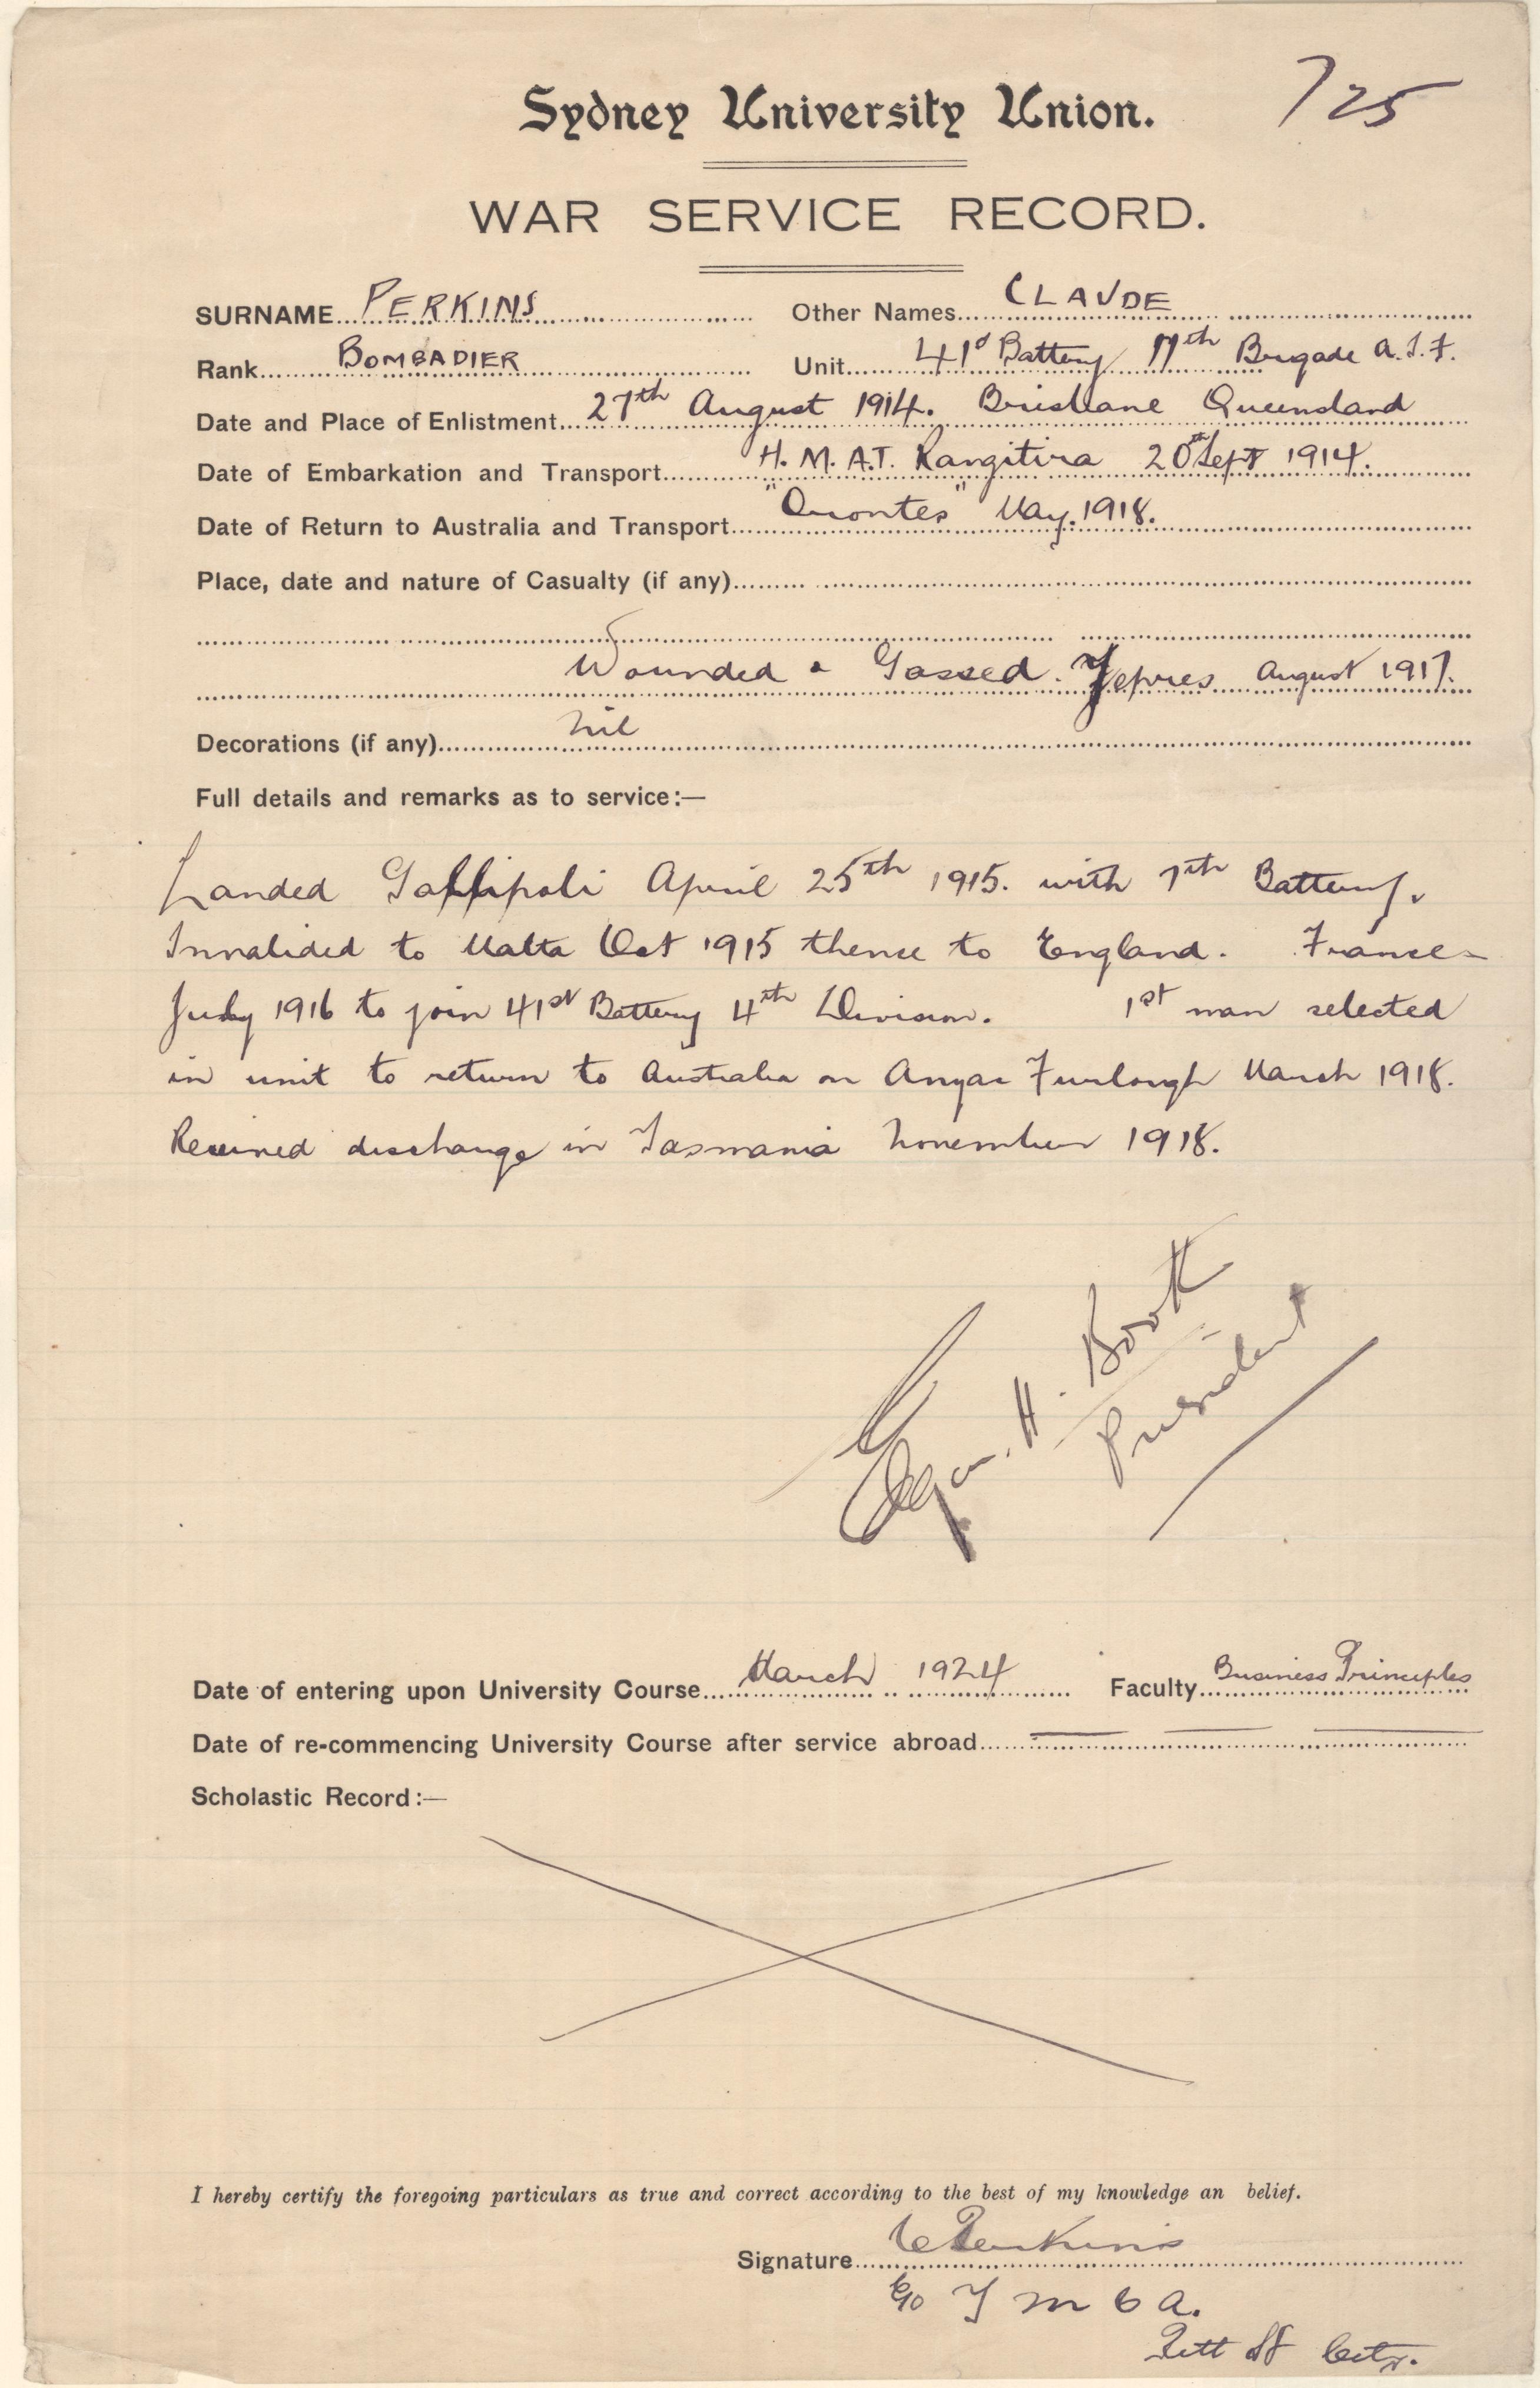 Sydney University Union. 725
WAR SERVICE RECORD.
SURNAME PERKINS Other Names CLAUDE
Rank BOMBADIER Unit 41st Battery 11th Brigade A.I.F.
Date and Place of Enlistment 27th August 1914. Brisbane Queensland
Date of Embarkation and Transport H.M.A.T. Rangitira 20th Sept 1914.
Date of Return to Australia and Transport "Orontes" May. 1918.
Place, date and nature of Casualty (if any)
Wounded & Gassed. Yepres August 1917.
Decorations (if any) nil
Full details and remarks as to service:—
Landed Gallipoli April 25th 1915. with 7th Battery.
Invalided to Malta Oct 1915 thence to England. France
July 1916 to join 41st Battery 4th Division. 1st man selected
in unit to return to Australia on Anzac Furlough March 1918.
Received discharge in Tasmania November 1918.
Edgar. H. Booth
President
Date of entering upon University Course March 1924 Faculty Business Principles
Date of re-commencing University Course after service abroad — — —
Scholastic Record:—
I hereby certify the foregoing particulars as true and correct according to the best of my knowledge an belief.
Signature C Perkins
c/o Y M C A.
Pitt St City.